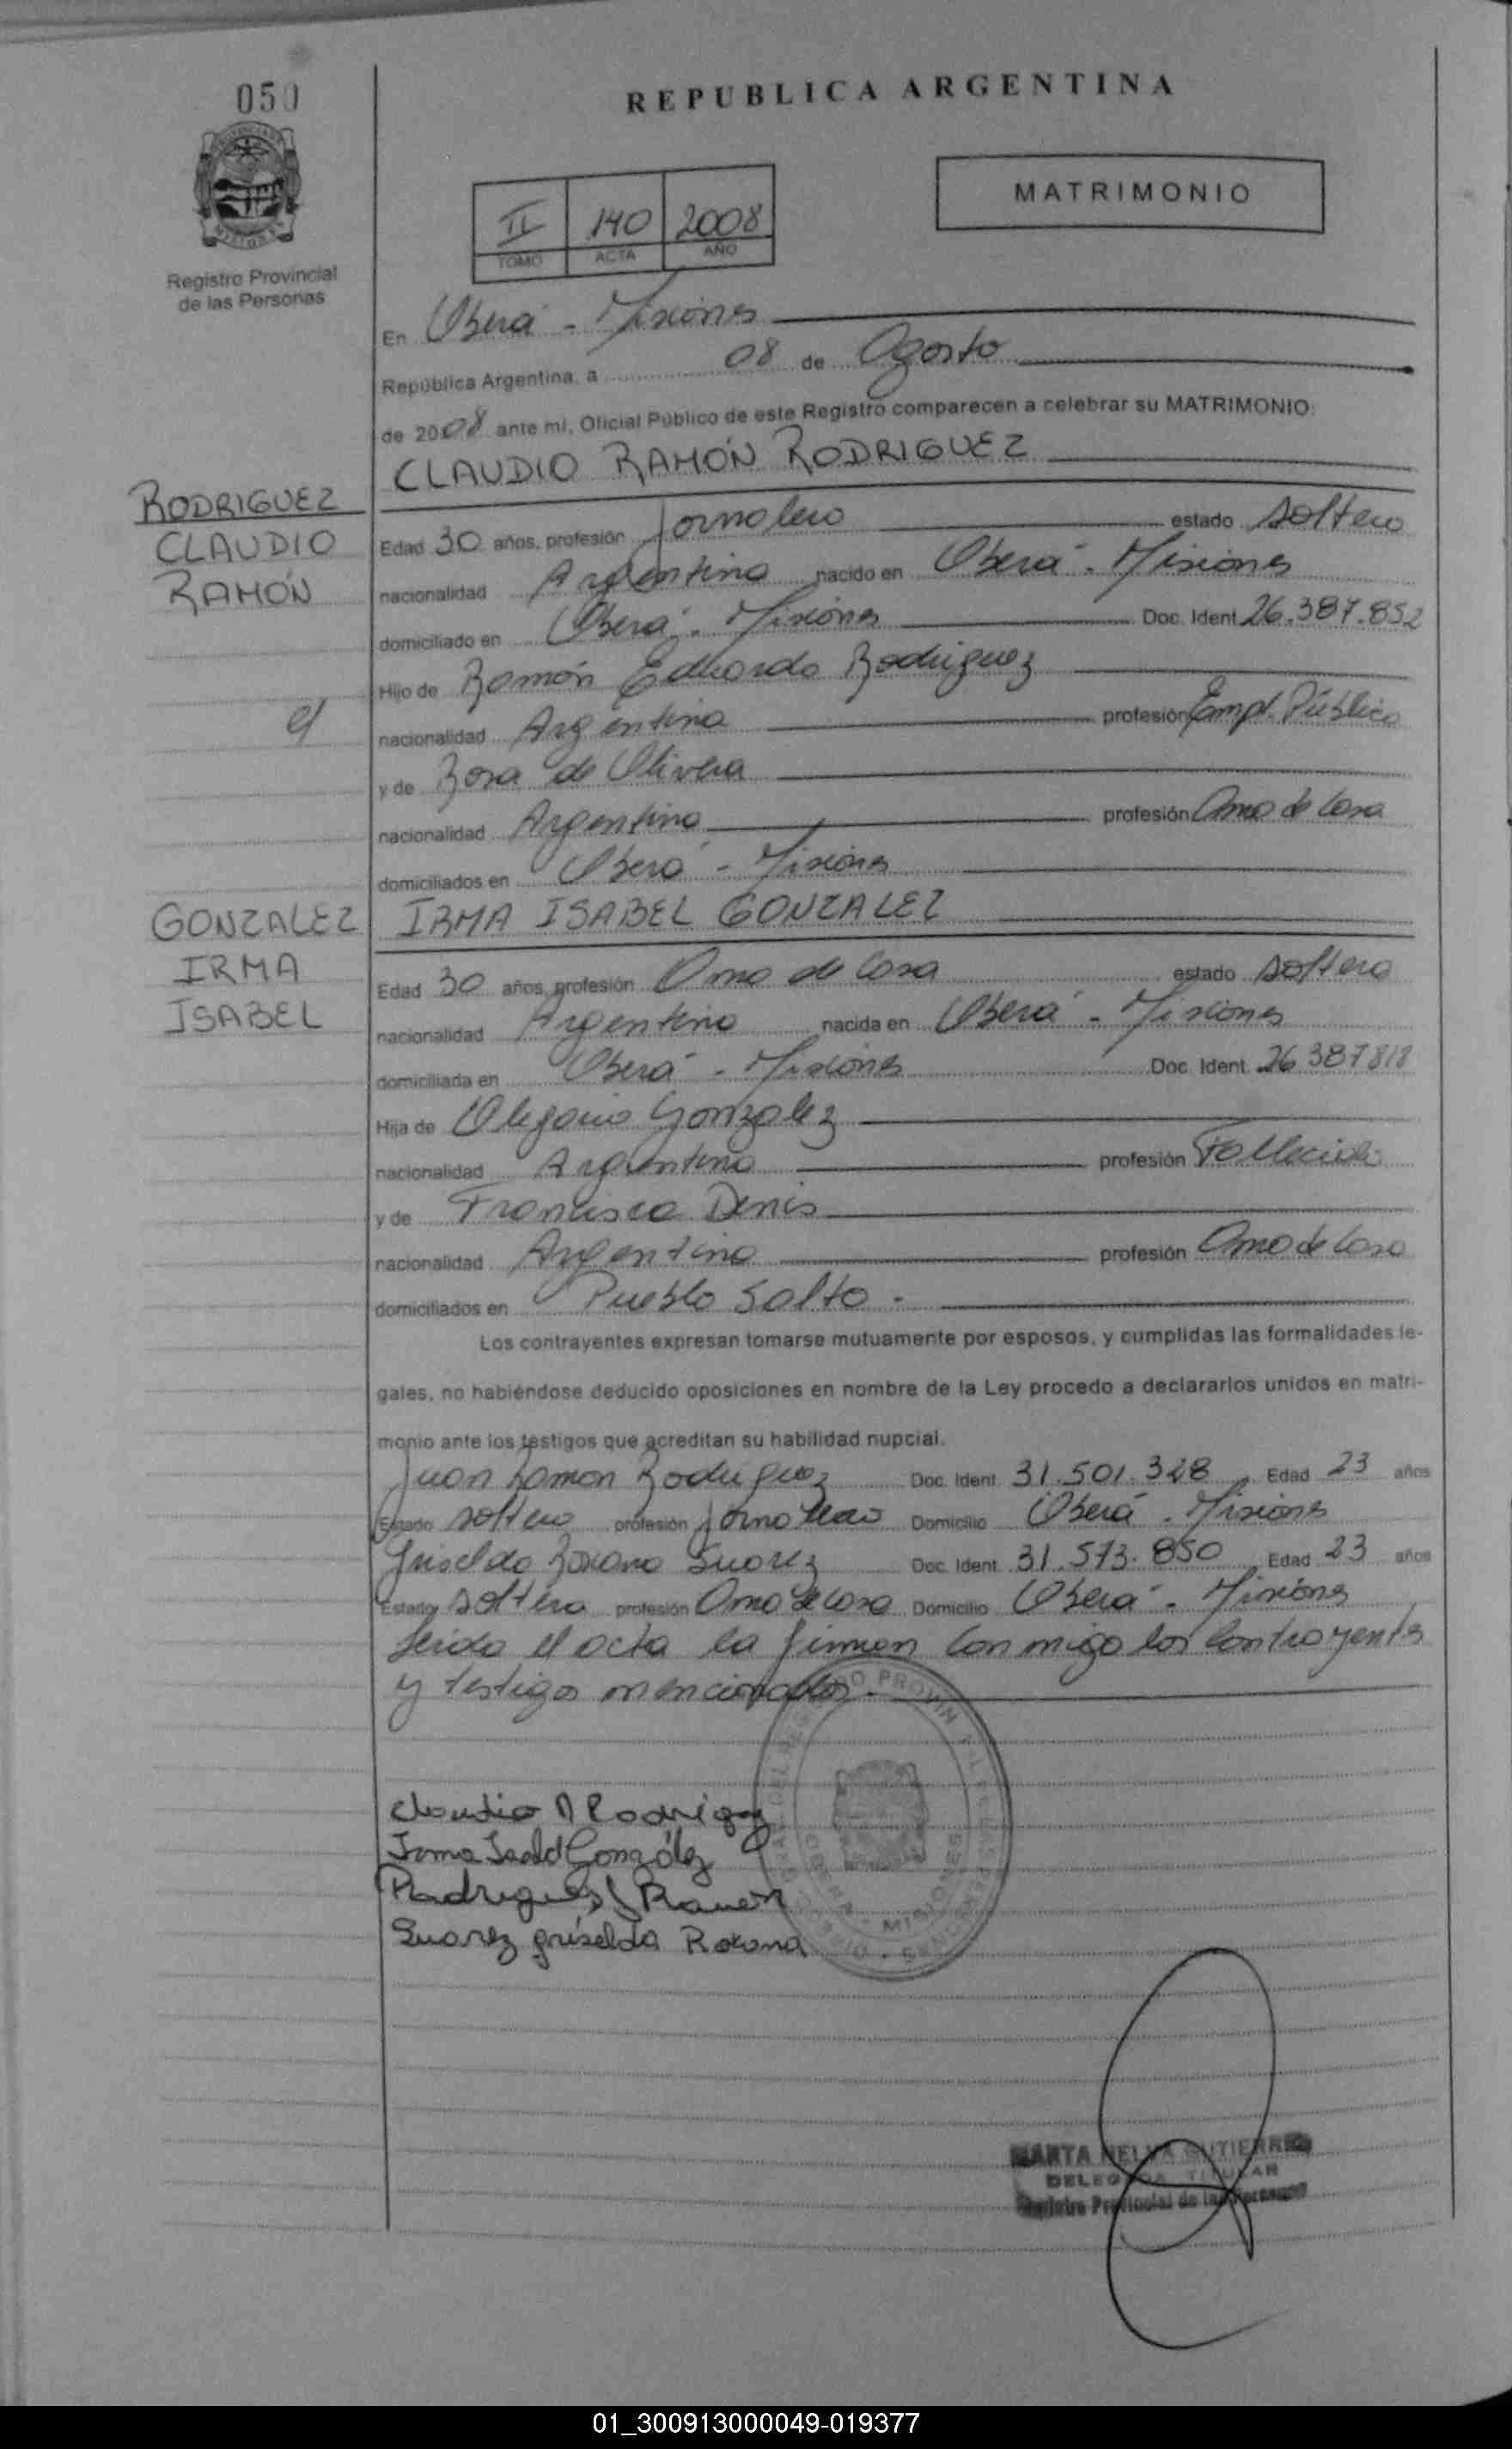 050
REPUBLICA ARGENTINA
MATRIMONIO
II 140 2008
TOMO ACTA AÑO
Registro Provincial
de las Personas
En Oberá - Misiones
República Argentina, a 08 de Agosto
de 2008 ante mí, Oficial Público de este Registro comparecen a celebrar su MATRIMONIO:
CLAUDIO RAMÓN RODRIGUEZ
RODRIGUEZ
CLAUDIO
RAMÓN
Edad 30 años, profesión Jornalero estado soltero
nacionalidad Argentina nacido en Oberá - Misiones
domiciliado en Oberá - Misiones Doc. Ident. 26.387.852
Hijo de Ramón Eduardo Rodriguez
nacionalidad Argentina profesión Empl. Público
y de Rosa de Olivera
nacionalidad Argentina profesión Ama de Casa
domiciliados en Oberá - Misiones
GONZALEZ
IRMA
ISABEL
IRMA ISABEL GONZALEZ
Edad 30 años, profesión Ama de Casa estado soltera
nacionalidad Argentina nacida en Oberá - Misiones
domiciliada en Oberá - Misiones Doc. Ident. 26 387 818
Hija de Olegario Gonzalez
nacionalidad Argentina profesión Fallecido
y de Francisca Denis
nacionalidad Argentina profesión Ama de Casa
domiciliados en Pueblo Salto -
Los contrayentes expresan tomarse mutuamente por esposos, y cumplidas las formalidades le-
gales, no habiéndose deducido oposiciones en nombre de la Ley procedo a declararlos unidos en matri-
monio ante los testigos que acreditan su habilidad nupcial.
Juan Ramon Rodriguez Doc. Ident. 31.501.328 Edad 23 años
Estado soltero profesión Jornalero Domicilio Oberá - Misiones
Griselda Roxana Suarez Doc. Ident. 31.573.850 Edad 23 años
Estado soltera profesión Ama de Casa Domicilio Oberá - Misiones
Leida el acta la firman conmigo los contrayentes
y testigos mencionados.-
Claudio R Rodriguez
Irma Isabel González
Rodrigues J Ramon
Suarez griselda Roxana
MISIONES
MARTA NELVA GUTIERREZ
DELEGADA TITULAR
Registro Provincial de las Personas
01_300913000049-019377